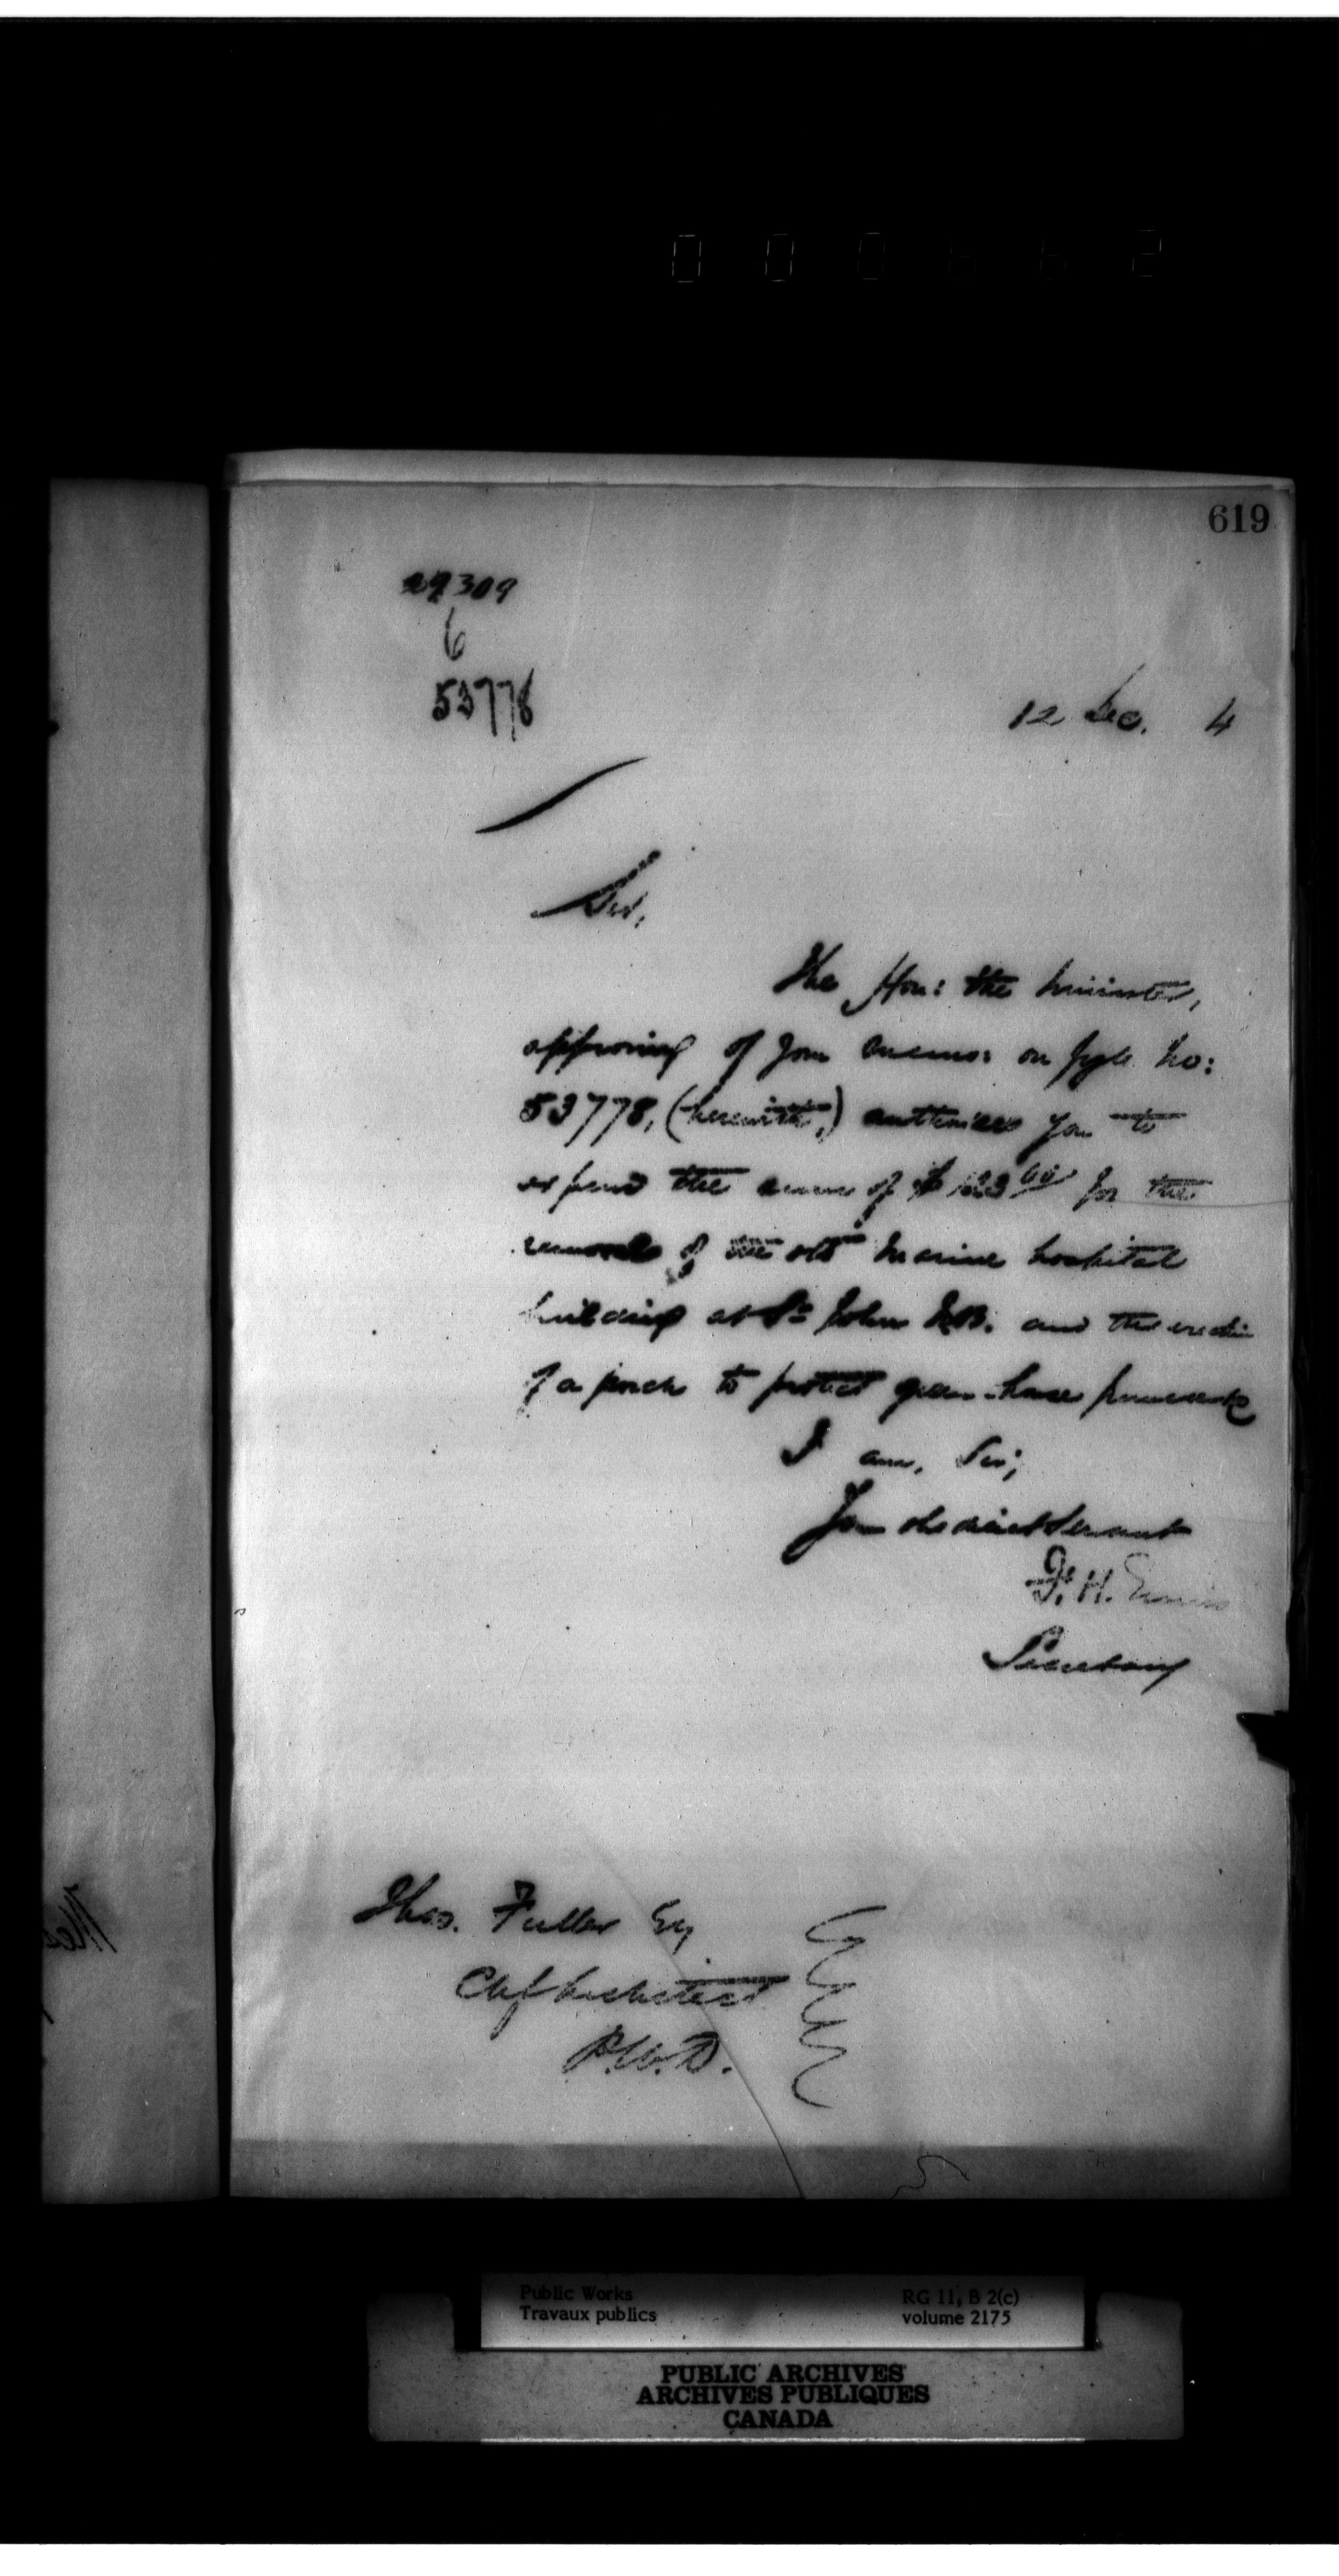 619
27309
6
53778
12 Dec. 4
Sir,
The Hon: the Minister,
approving of your memo: on fyle No:
53778, (herewith,) authorizes you to
expend the sum of $ 123 00 for the
removal of the old Marine hospital
building at St John N.B. and the erection
of a porch to protect green-house
I am, Sir,
Your obedient Servant
F. H. Ennis
Secretary
Thos. Fuller Esq
Chf Architect
P.W.D.
Public Works
Travaux publics
RG 11, B 2(c)
volume 2175
PUBLIC ARCHIVES
ARCHIVES PUBLIQUES
CANADA